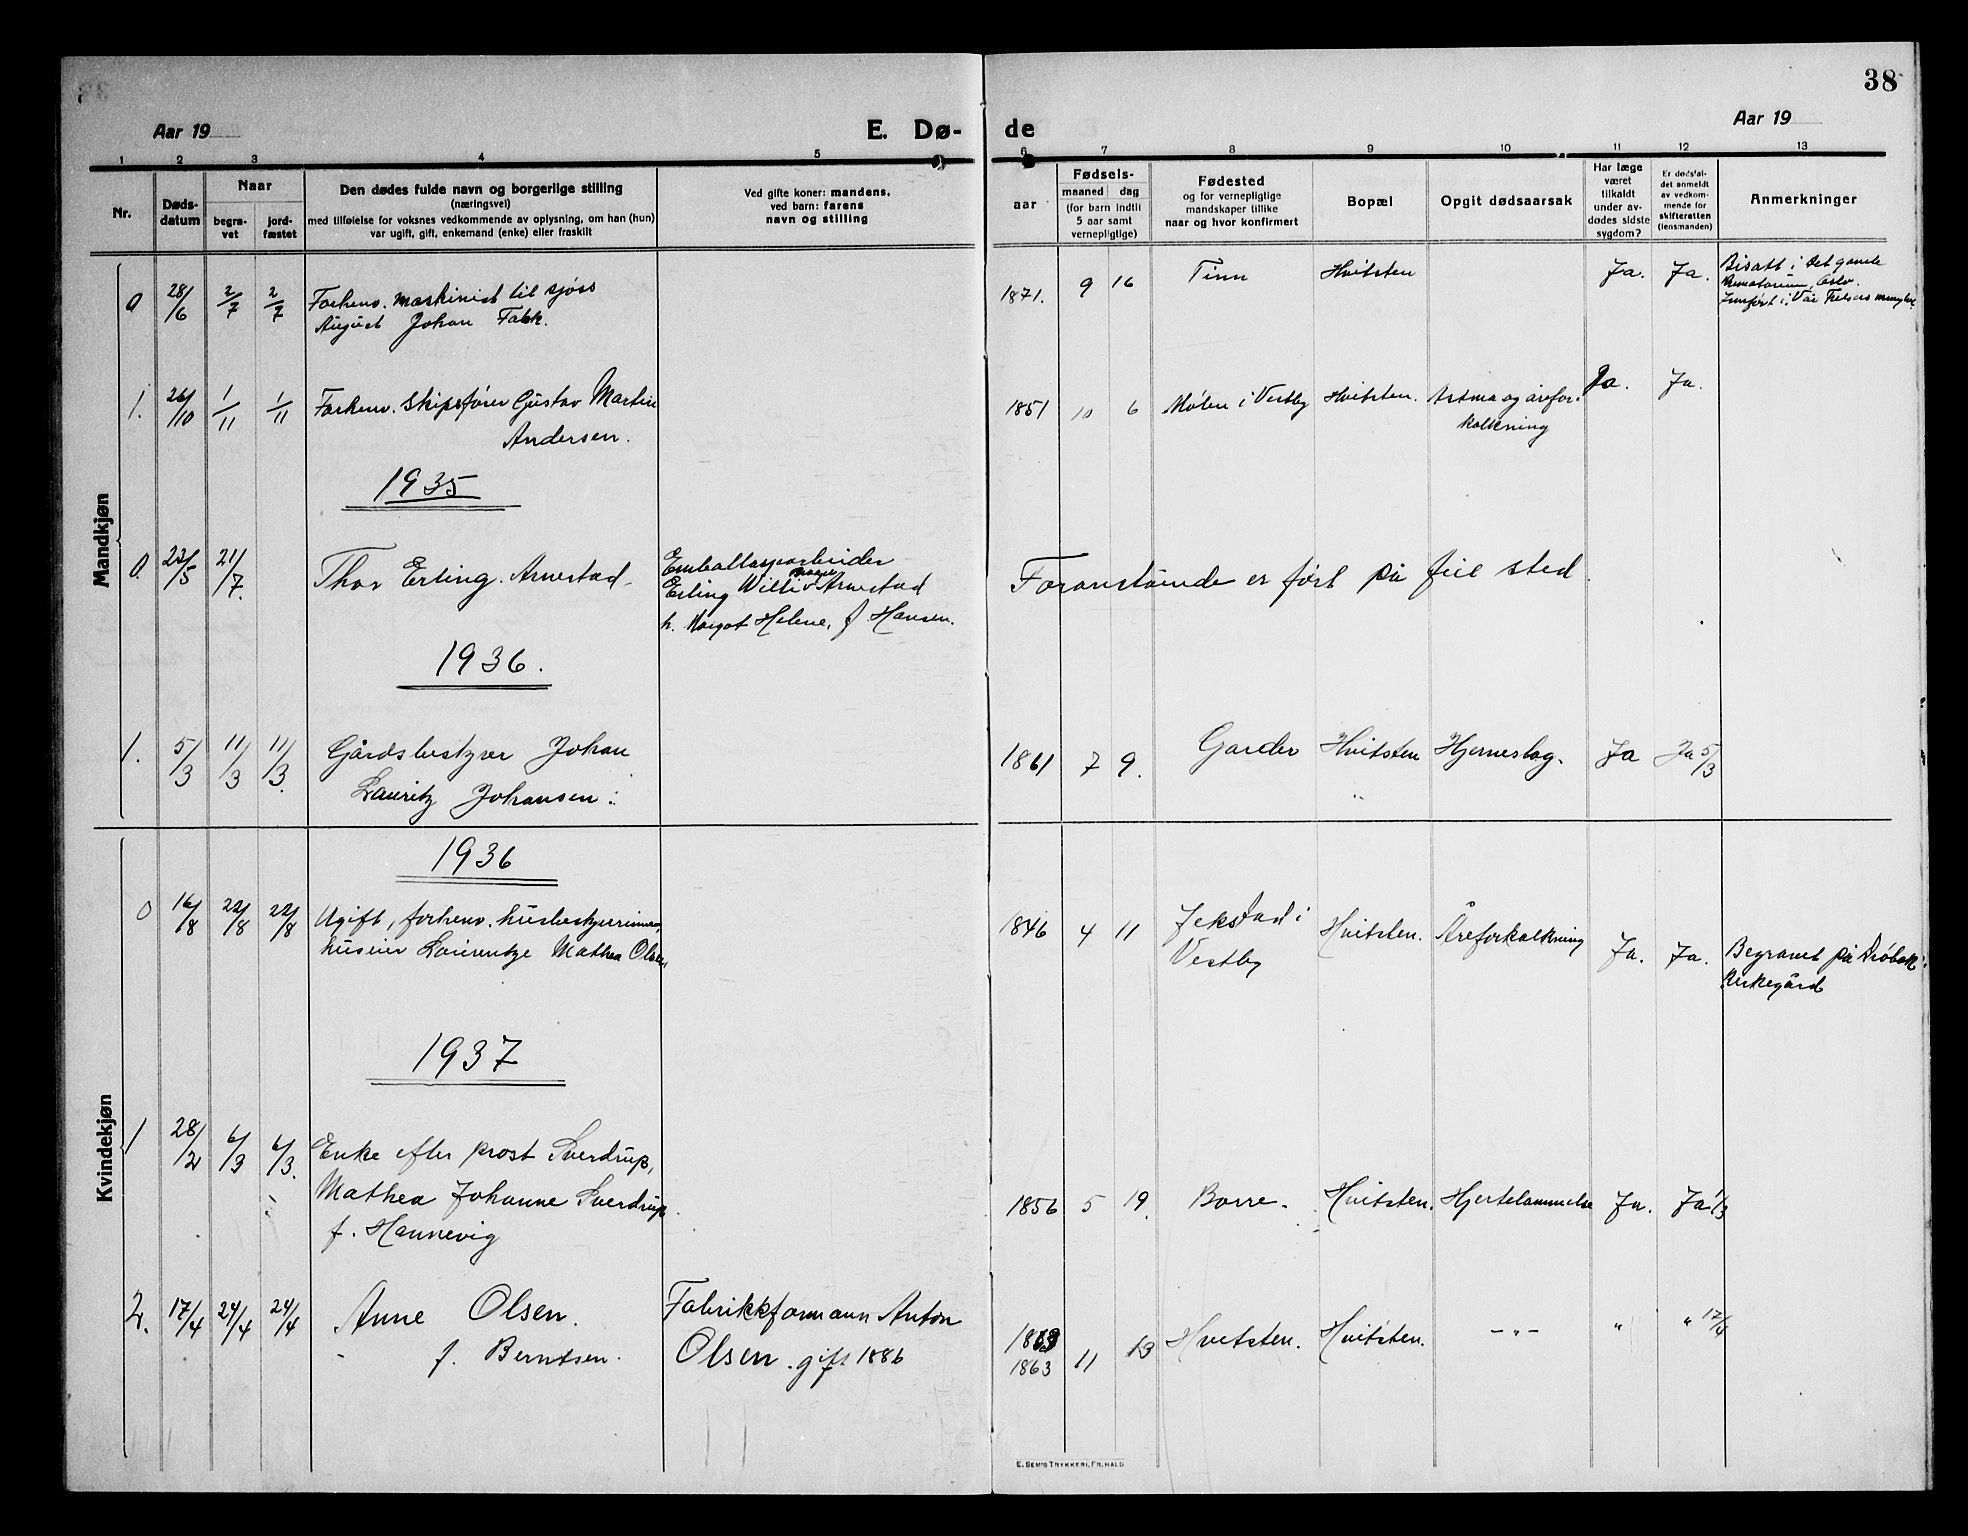 38
Aar 19
E. Dø-
de
Aar 19
1 2 3 4 5 6 7 8 9 10 11 12 13
Nr.
Døds-
datum
Naar
begra-
vet
jord-
fæstet
Den dødes fulde navn og borgerlige stilling
(næringsvei)
med tilføielse for voksnes vedkommende av oplysning, om han (hun)
var ugift, gift, enkemand (enke) eller fraskilt
Ved gifte koner: mandens,
ved barn: farens
navn og stilling
aar
Fødsels-
maaned dag
(for barn indtil
5 aar samt
vernepligtige)
Fødested
og for vernepligtige
mandskaper tillike
naar og hvor konfirmert
Bopæl
Opgit dødsaarsak
Har læge
været
tilkaldt
under av-
dødes sidste
sygdom?
Er dødsfal-
det anmeldt
av vedkom-
mende for
skifteretten
(lensmanden)
Anmerkninger
Mandkjøn
0 28/6 2/7 2/7 Forhenv. maskinist til sjøss
August Johan Falk.
1871. 9 16 Tinn Hvitsten Ja. Ja. Bisatt i Det gamle
Krematorium, Oslo.
i Vår Frelsers
1. 26/10 1/11 1/11 Forhenv. skipsfører Gustav Martin
Andersen.
1851 10 6 Mølen i Vestby Hvitsten. Astma og årefor-
kalkning
Ja. Ja.
1935
0. 22/5 21/7. Thor Erling Arnestad
Emballasjearbeider
Erling Arnestad
h. Margot Helene, f. Hansen.
Foranstående er ført på feil sted
1936.
1. 5/3 11/3 11/3. Gårdsbestyrer Johan
Lauritz Johansen.
1861 7 9. Garder Hvitsten Hjerneslag. Ja Ja 5/3
1936
Kvindekjøn
0 16/8 22/8 22/8 Ugift, forhenv. husbestyrerinne,
huseier Laurentze Mathea Olsen
1846 4 11 Jekstad i
Vestby
Hvitsten. Åreforkalkning Ja. Ja. Begravet på Drøbak
kirkegård
1937
1 28/2 6/3 6/3. Enke efter prost Sverdrup,
Mathea Johanne Sverdrup.
f. Hannevig
1856 5 19. Borre. Hvitsten. Hjertelammelse Ja. Ja 1/3
2. 17/4 24/4 24/4 Anne Olsen.
f. Berntsen.
Fabrikkformann Anton
Olsen. gift 1886
1863 11 13 Hvitsten. Hvitsten. -"- " " 17/4
E. SEM'S TRYKKERI, FR.HALD